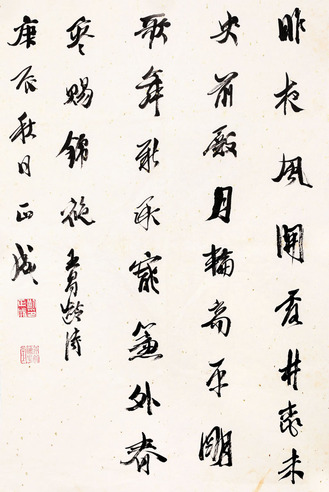 昨夜風開露井桃未
央前殿月輪高平明
歌舞新承寵簾外春
寒賜錦袍王昌齡詩
庚辰秋日正成